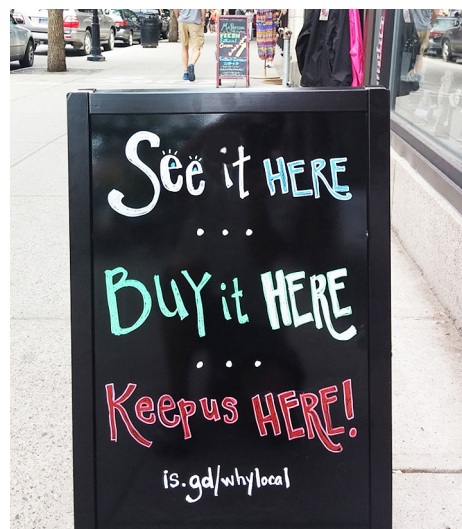 See it HERE
...
BUY it HERE
...
Keep us HERE!
is.gd/whylocal